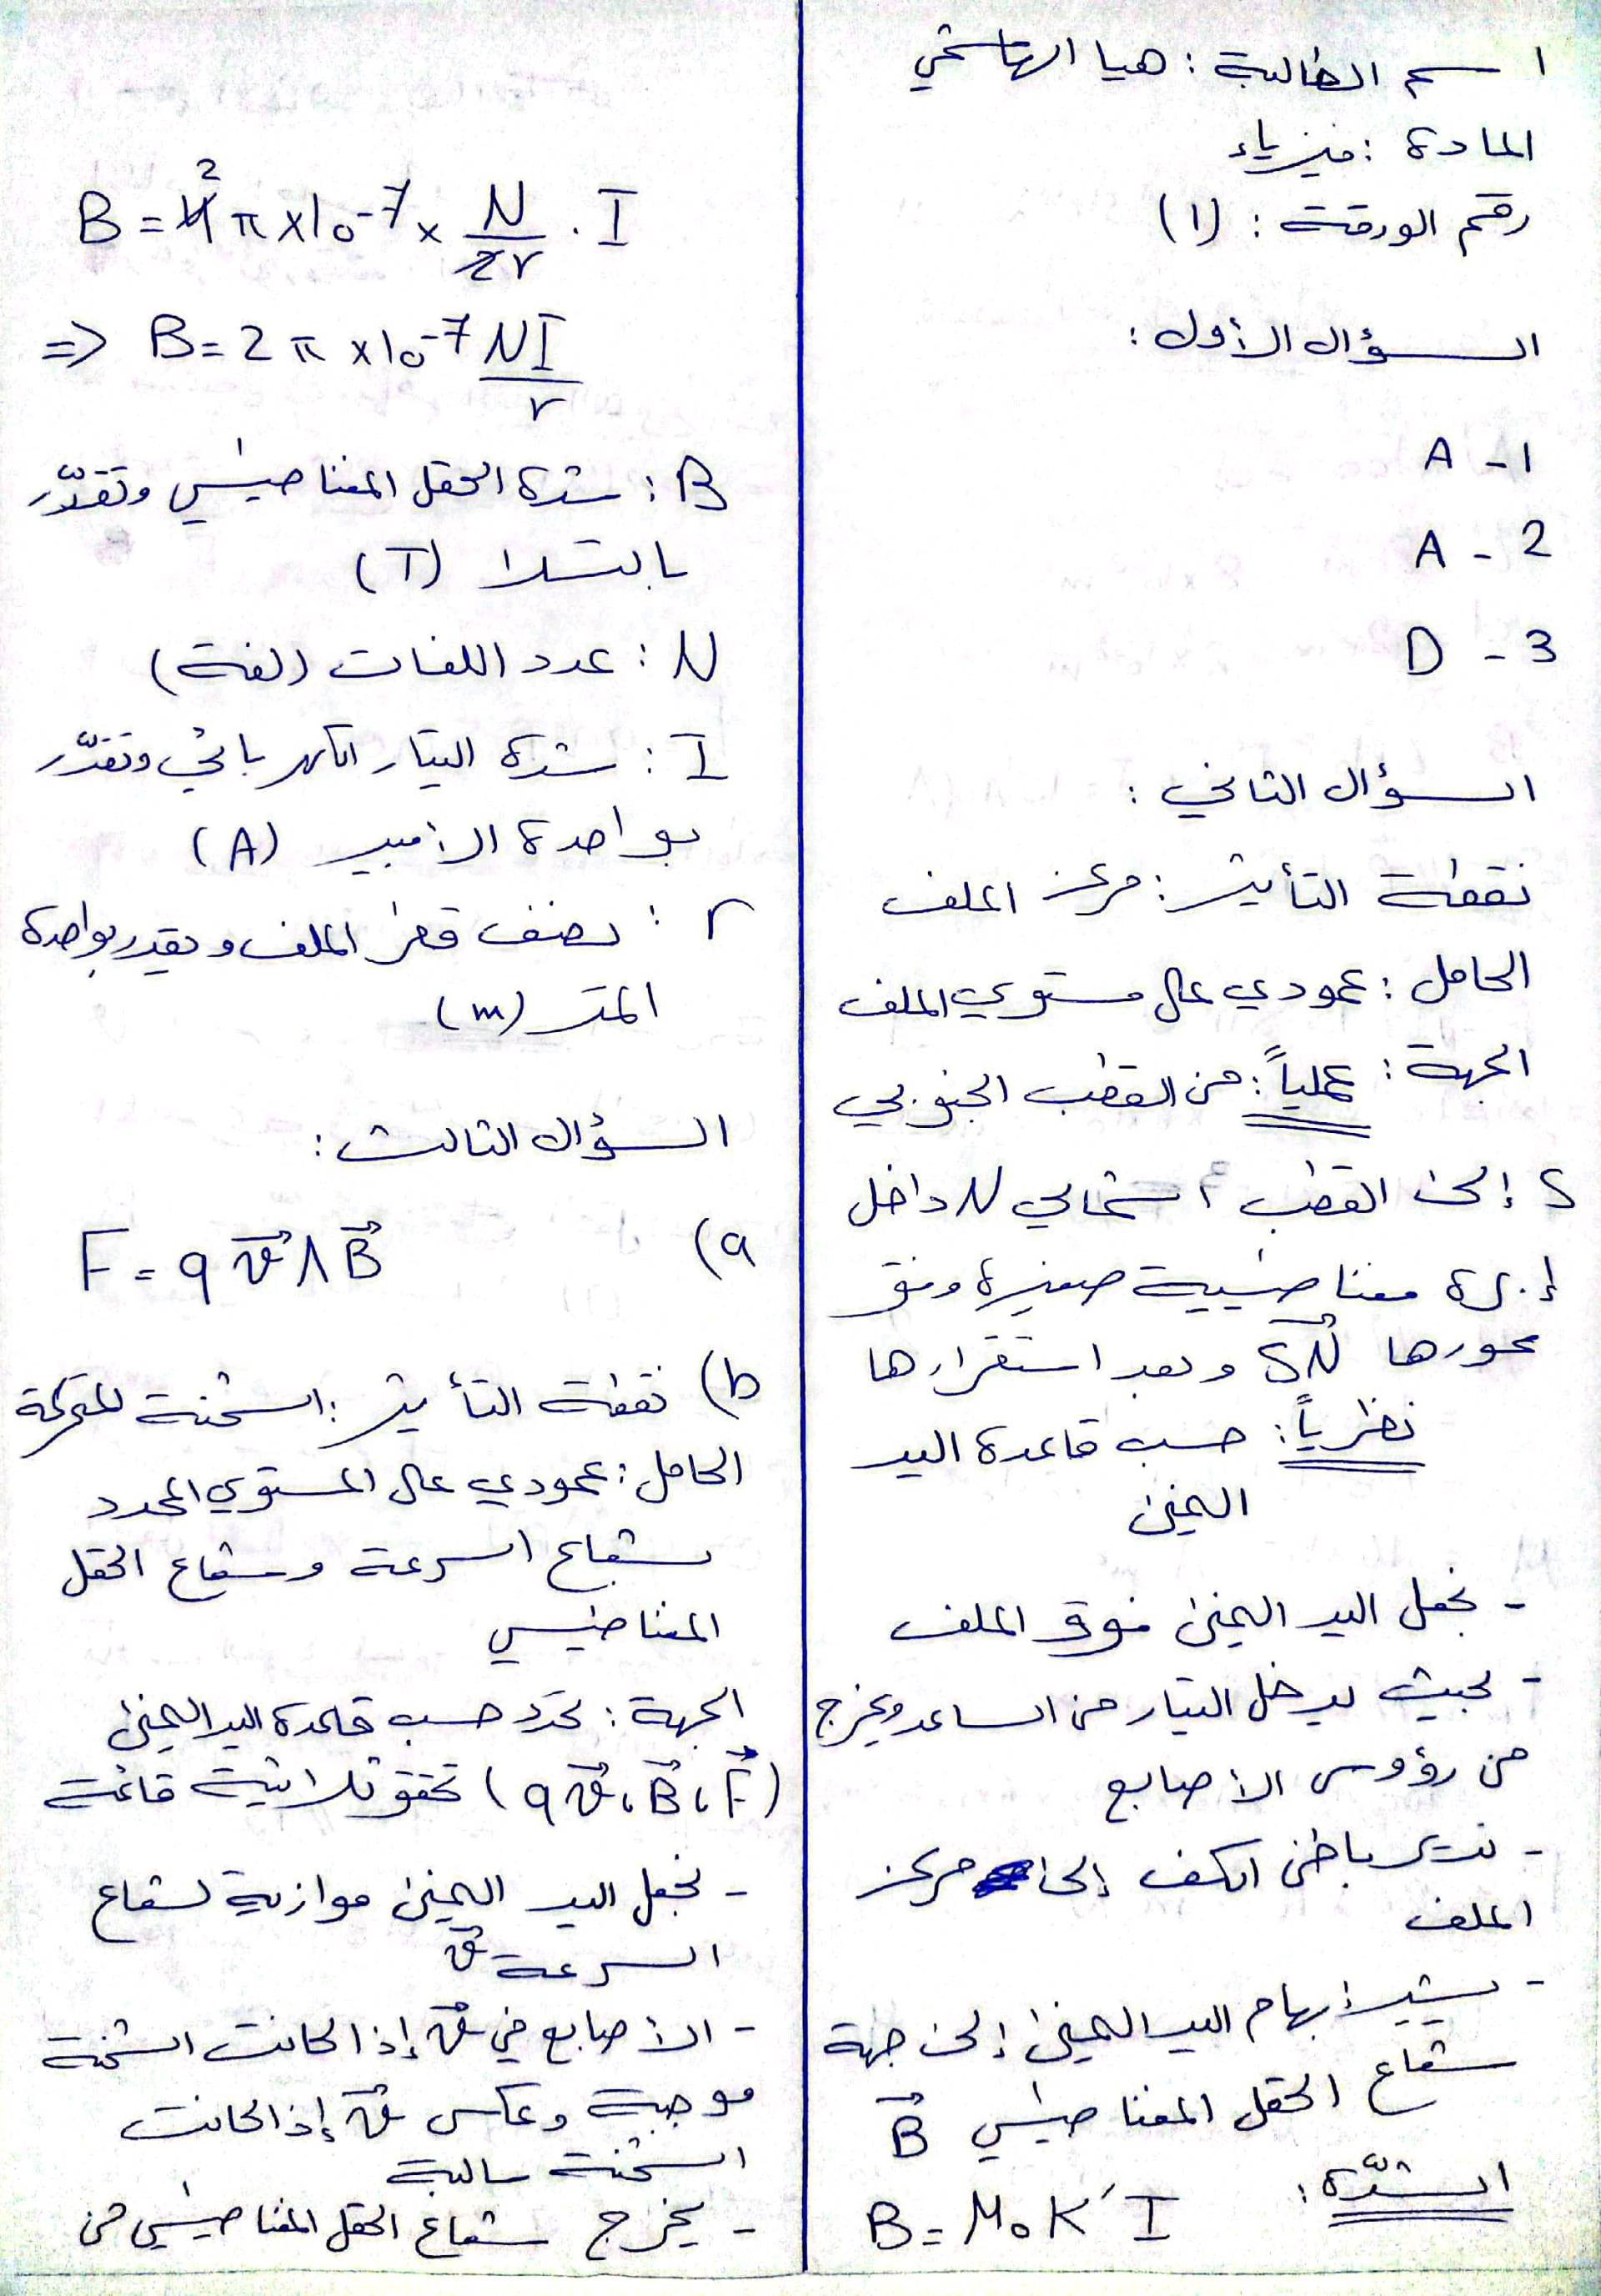 اسم الطالبة : هيا الهاشمي
المادة : فيزياء
رقم الورقة : (1)
السؤال الأول :
1 - A
2 - A
3 - D
السؤال الثاني :
نقطة التأثير : مركز الملف
الحامل : عمودي على مستوي الملف
الجهة : عملياً : من القطب الجنوبي
S إلى القطب الشمالي N داخل
إبرة مغناطيسية صغيرة وفق
محورها SN وبعد استقرارها
نظرياً : حسب قاعدة اليد
اليمنى
- نجعل اليد اليمنى فوق الملف
- بحيث يدخل التيار من الساعد ويخرج
من رؤوس الأصابع
- ندير باطن الكف إلى مركز
الملف
- يشير إبهام اليد اليمنى إلى جهة
شعاع الحقل المغناطيسي B⃗
الشدّة :
B = μ₀ K' I
B = 4 2 π × 10⁻⁷ × N/2r . I
⇒ B = 2 π × 10⁻⁷ NI/r
B : شدة الحقل المغناطيسي وتقدّر
بالتسلا (T)
N : عدد اللفات (لفة)
I : شدة التيار الكهربائي وتقدّر
بواحدة الأمبير (A)
r : نصف قطر الملف ويقدر بواحدة
المتر (m)
السؤال الثالث :
a) F = q v⃗ ∧ B⃗
b) نقطة التأثير : الشحنة المتحركة
الحامل : عمودي على المستوي المحدد
بشعاع السرعة وشعاع الحقل
المغناطيسي
الجهة : تحدد حسب قاعدة اليد اليمنى
(q v⃗ ، B⃗ ، F⃗) تحقق ثلاثية قائمة
- نجعل اليد اليمنى موازية لشعاع
السرعة v⃗
- الأصابع في v⃗ إذا كانت الشحنة
موجبة وعكس v⃗ إذا كانت
الشحنة سالبة
- يخرج شعاع الحقل المغناطيسي من